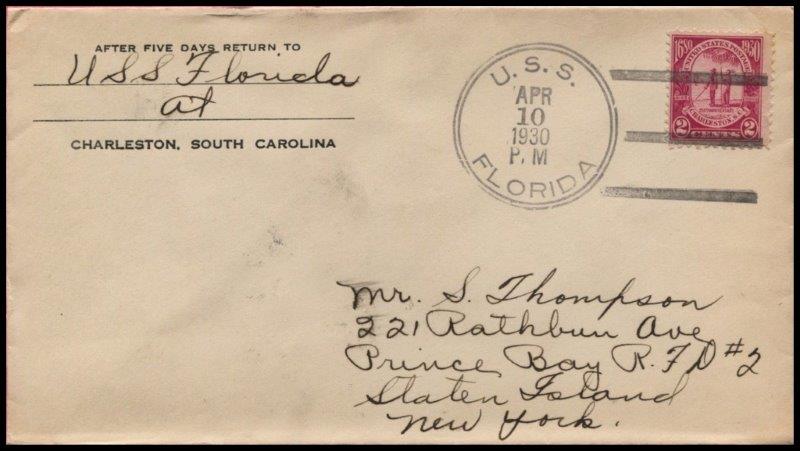 AFTER FIVE DAYS RETURN TO
USS Florida
at
CHARLESTON, SOUTH CAROLINA
U.S.S. FLORIDA
APR
10
1930
P.M
1680 1930
UNITED STATES POSTAGE
CHARLESTON, S.C.
2 CENTS 2
Mr. S. Thompson
221 Rathbun Ave
Prince Bay R.F.D #2
Staten Island
New York.